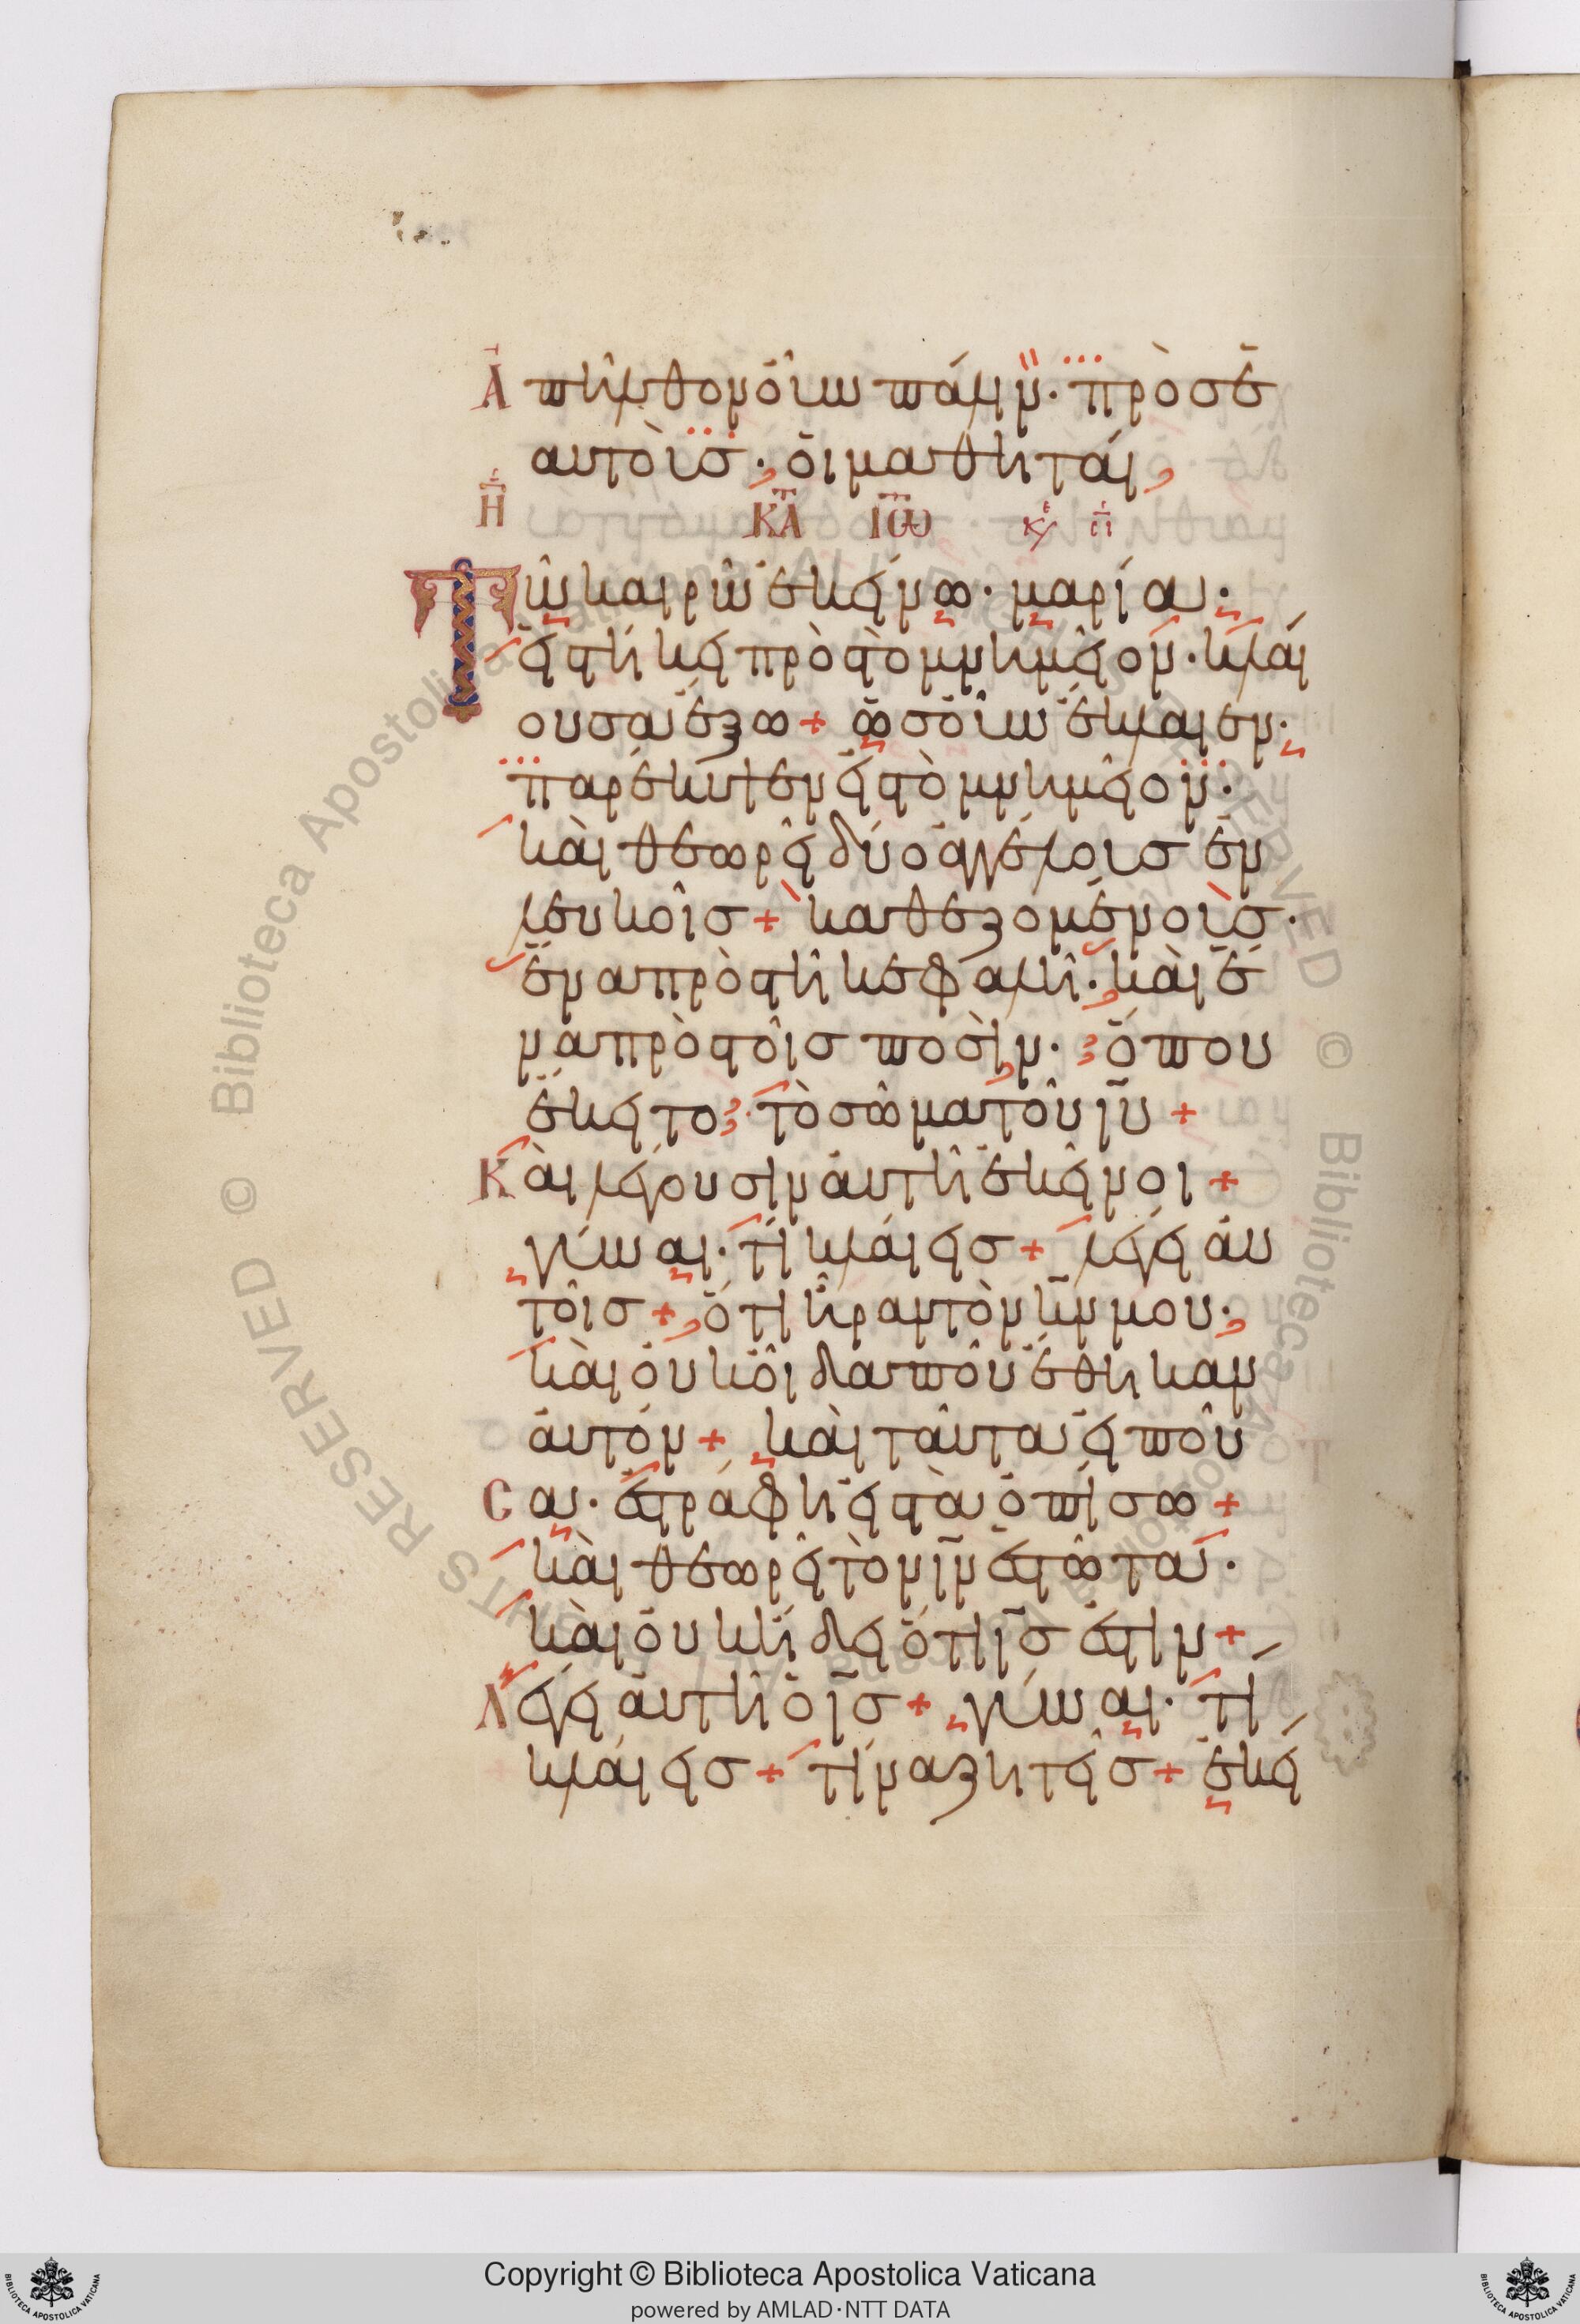 Ἀπῆλθον οὖν πάλιν· πρὸς ἑ
αυτοὺς· οἱ μαθηταί
Η ΚΑΤ ΙΩ
Τῶ καιρῶ ἐκείνω· μαρία·
εἱστήκει πρὸς τὸ μνημεῖον· κλαί
ουσα ἔξω + ὡς οὖν ἔκλαιεν·
παρέκυψεν εἰς τὸ μνημεῖον·
καὶ θεωρεῖ δύο ἀγγέλους ἐν
λευκοῖς + καθεζομένους·
ἕνα πρὸς τῆ κεφαλῆ· καὶ ἕ
να πρὸς τοῖς ποσὶν· ὅπου
ἔκειτο· τὸ σῶμα τοῦ ιυ +
Καὶ λέγουσιν αὐτῆ ἐκεῖνοι +
γύναι· τί κλαίεις + λέγει αὐ
τοῖς + ὅτι ἦραν τὸν κν μου·
καὶ οὐκ οἶδα ποῦ ἔθηκαν
αὐτόν + καὶ ταῦτα εἰποῦ
Σα· ἐστράφη εἰς τὰ ὀπίσω +
καὶ θεωρεῖ τὸν ιν ἑστῶτα·
καὶ οὐκ ἤδει ὅτι ις ἐστιν +
Λέγει αὐτῆ ὁ ις + γύναι· τί
κλαίεις + τίνα ζητεῖς + ἐκεί
Copyright © Biblioteca Apostolica Vaticana
powered by AMLAD·NTT DATA